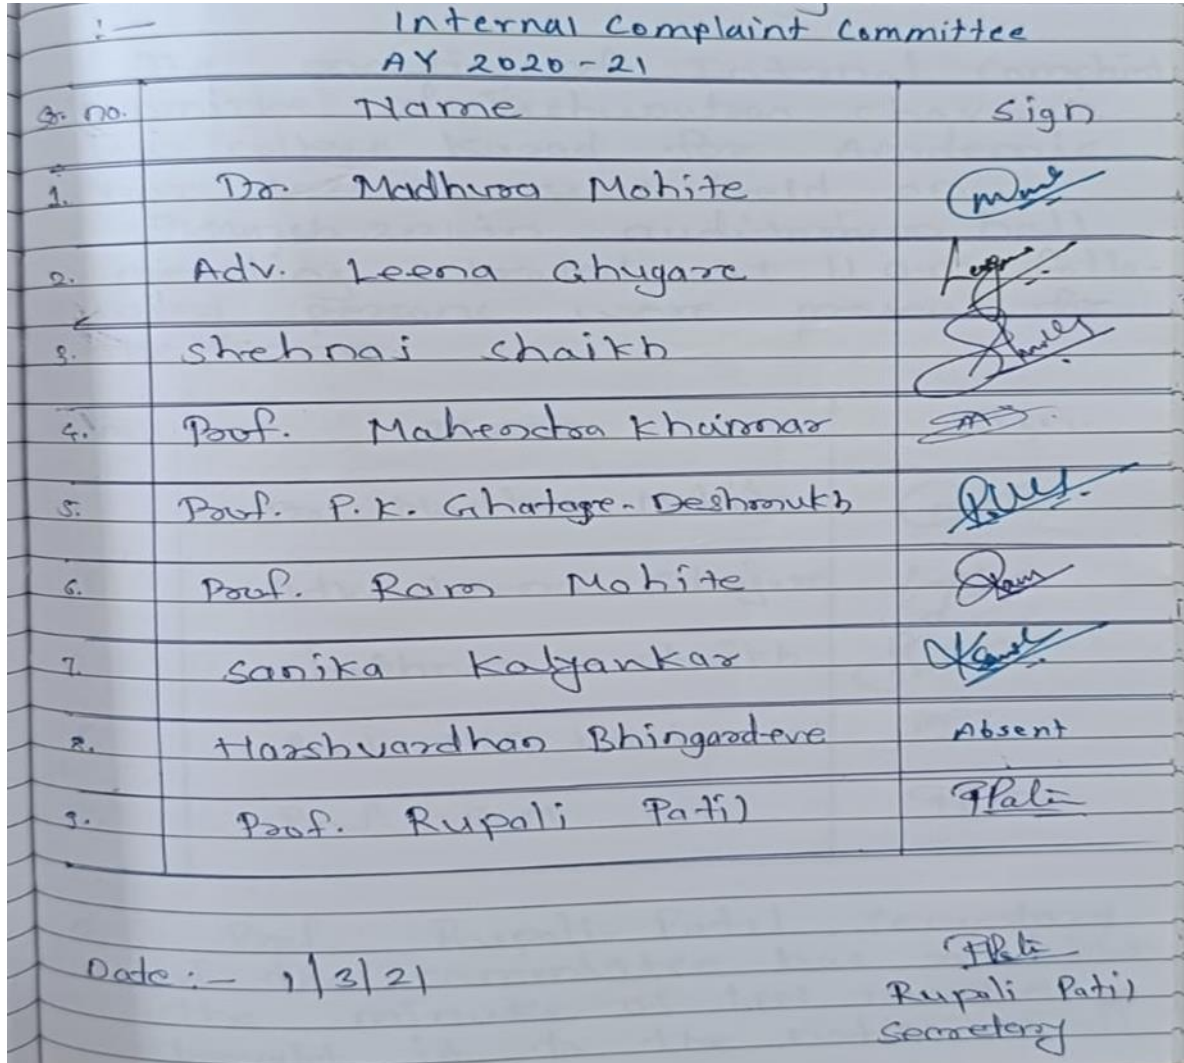 :-
Internal Complaint Committee
AY 2020-21
Sr. no. Name Sign
1. Dr. Madhura Mohite
2. Adv. Leena Ghugare
3. Shehnai Shaikh
4. Prof. Mahendra Khairnar
5. Prof. P.K. Ghatage-Deshmukh
6. Prof. Ram Mohite
7. Sanika Kalyankar
8. Harshvardhan Bhingardeve Absent
9. Prof. Rupali Patil
Date :- 1/3/21
Rupali Patil
Secretary